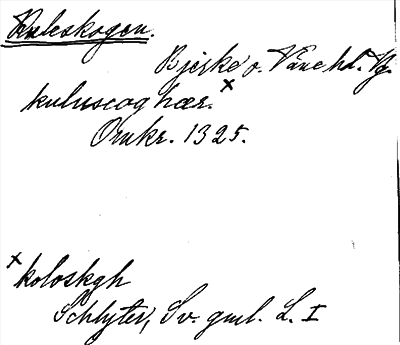 Kuleskogen.
Bjerke o. Väne hd. Vg.
kuluscoghær. x
Ornkr. 1325.
x koloskgh
Schlyter, Sv. gml. L. I